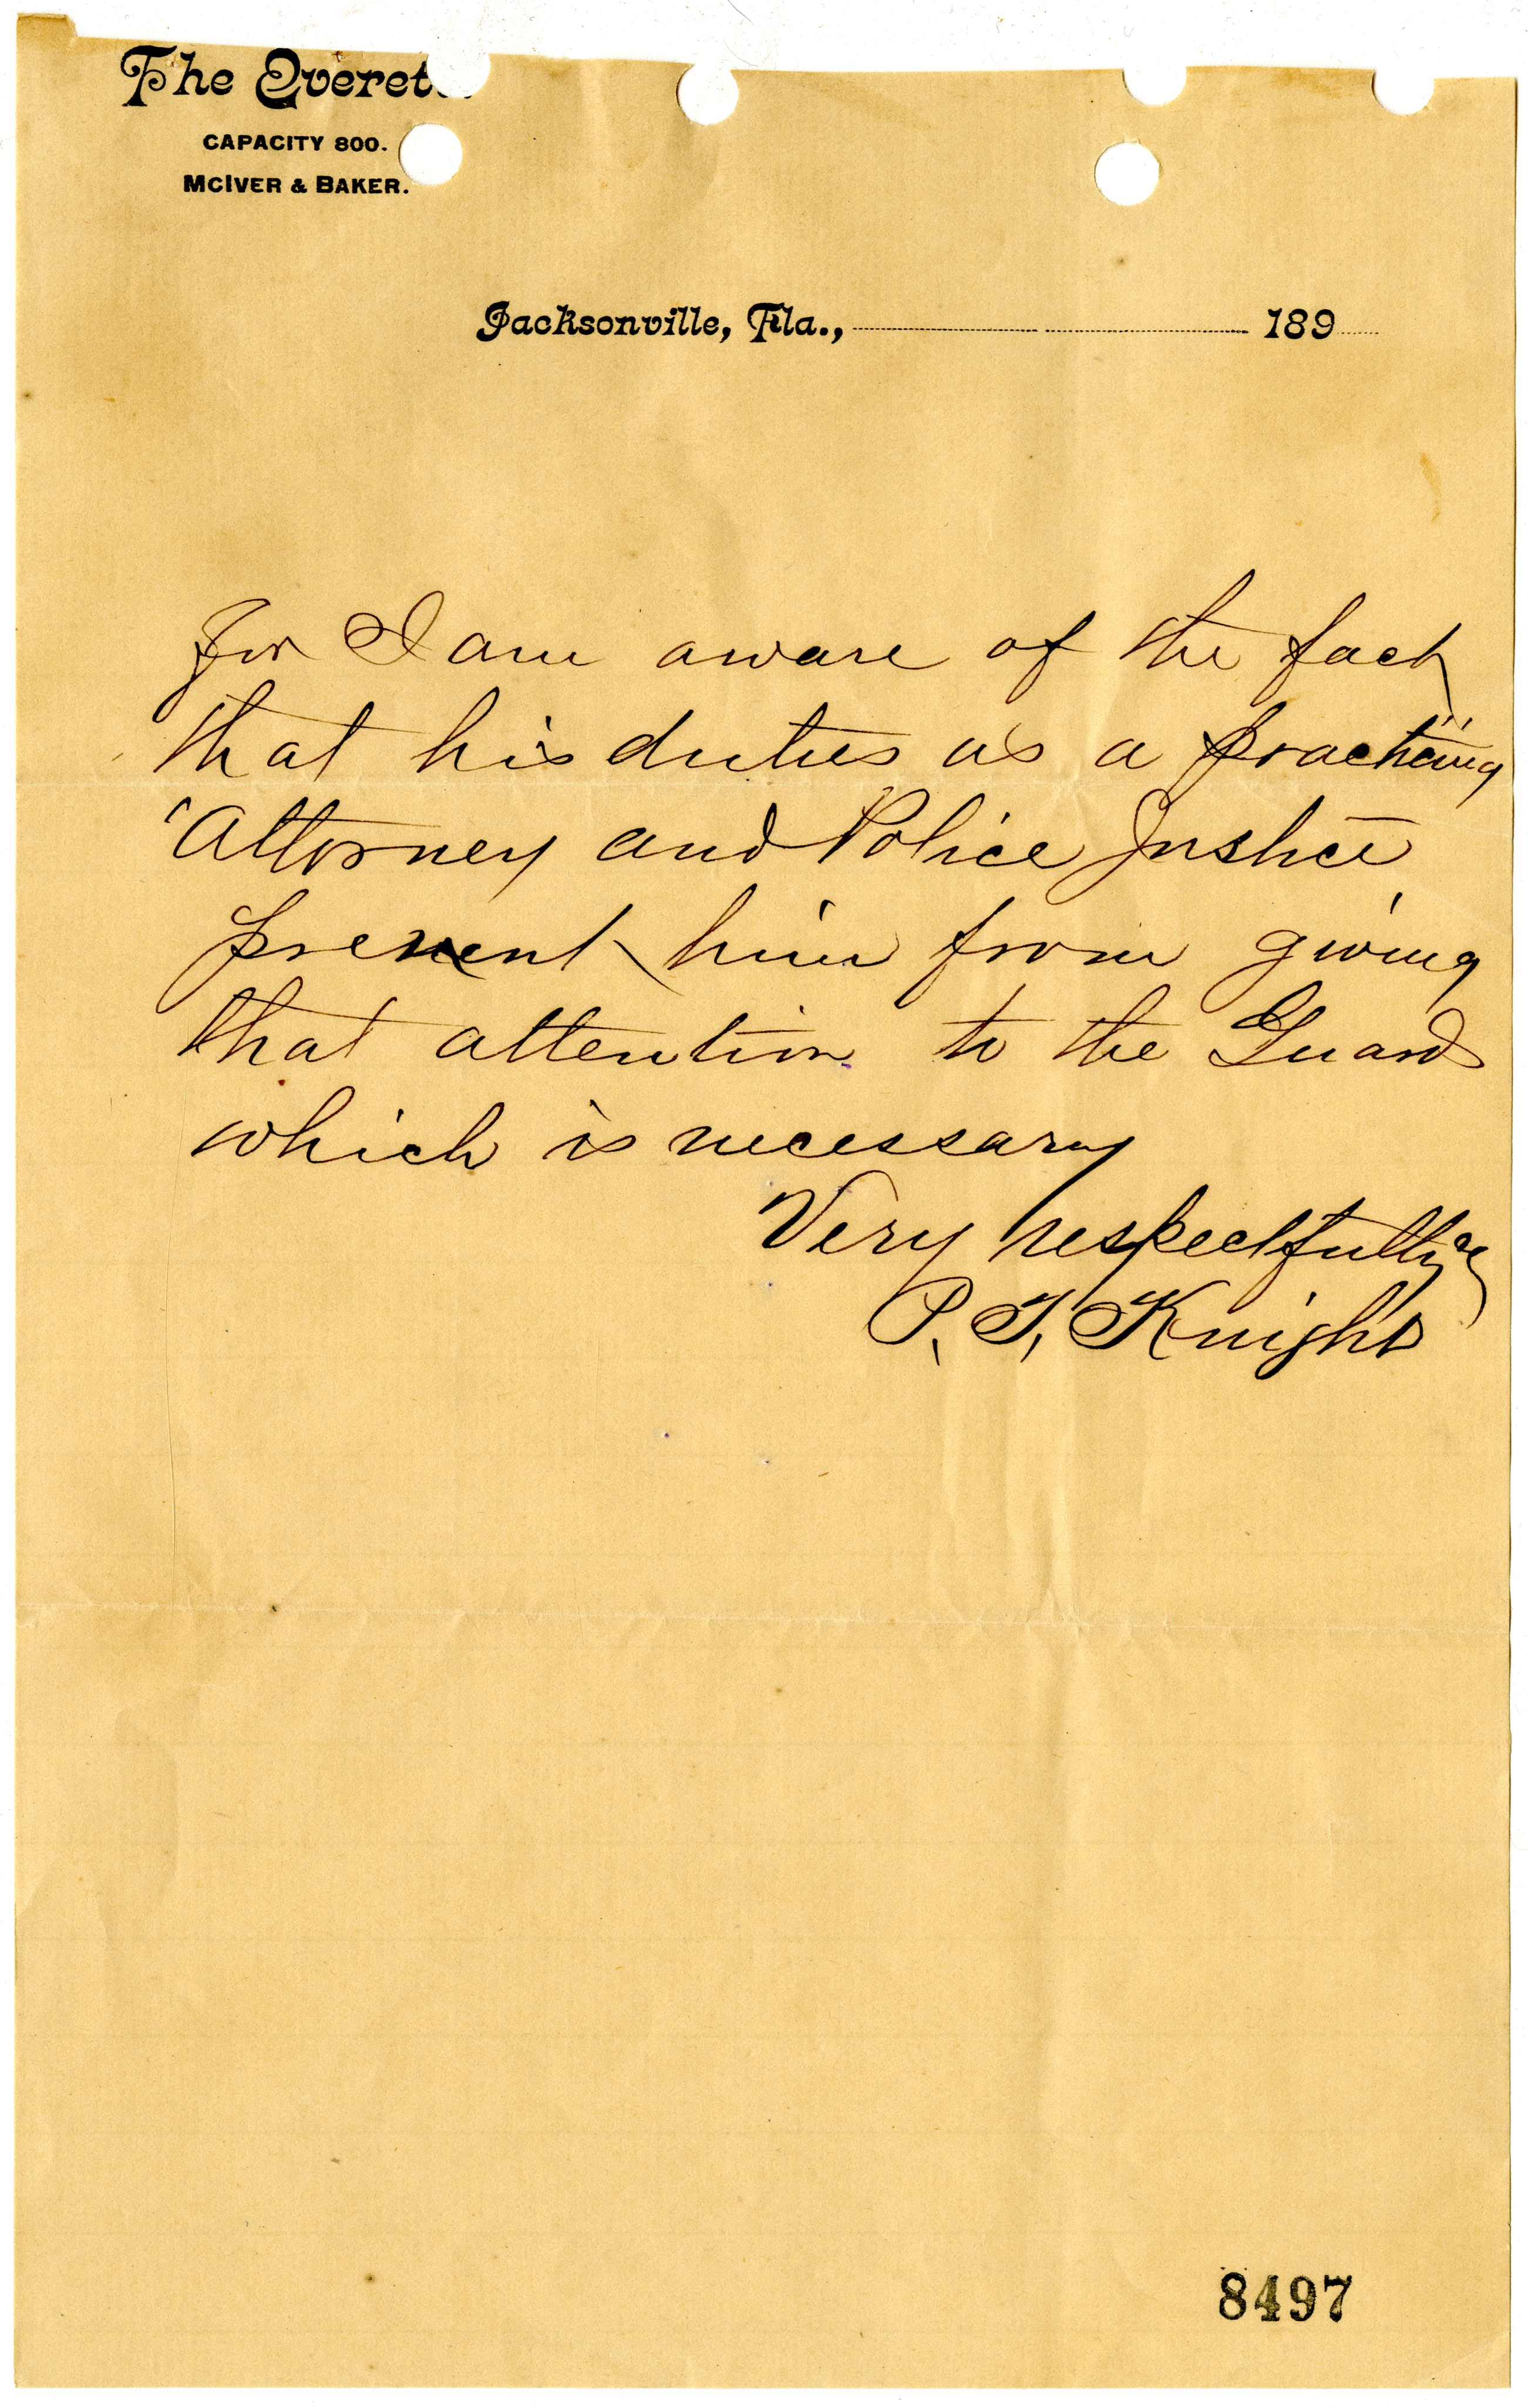 The Everet
CAPACITY 800.
MCIVER & BAKER.
Jacksonville, Fla., 189
for I am aware of the fact
that his duties as a practicing
Attorney and Police Justice
prevent him from giving
that attention to the Guard
which is necessary
Very respectfully
P. G. Knight
8497